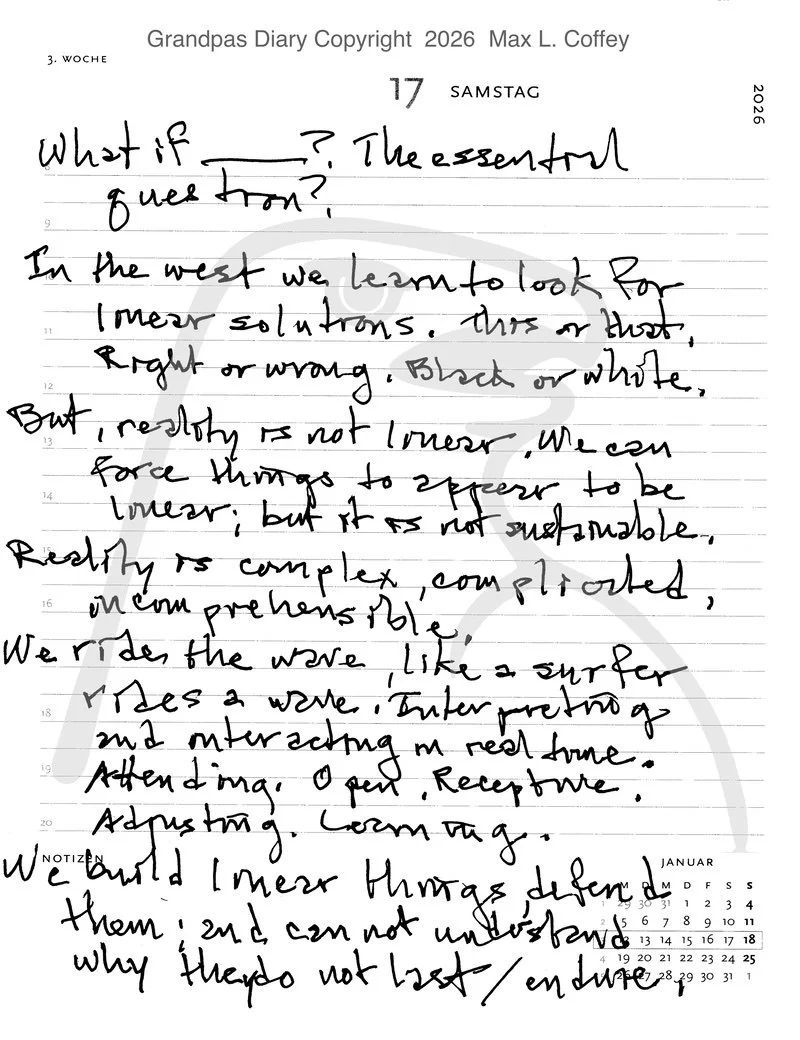 Grandpas Diary Copyright 2026 Max L. Coffey
3. WOCHE
17 SAMSTAG
2026
What if ______?. The essential
question?.
In the west we learn to look for
linear solutions. This or that.
Right or wrong. Black or white.
But, reality is not linear. We can
force things to appear to be
linear; but it is not sustainable.
Reality is complex, complicated,
incomprehensible.
We ride the wave, like a surfer
rides a wave. Interpreting
and interacting in real time.
Attending. Open. Receptive.
Adjusting. Learning.
We build linear things, defend
them; and can not understand
why they do not last/endure.
9
11
12
13
14
15
16
18
19
20
NOTIZEN
JANUAR
M D M D F S S
1 29 30 31 1 2 3 4
2 5 6 7 8 9 10 11
13 14 15 16 17 18
4 19 20 21 22 23 24 25
26 27 28 29 30 31 1